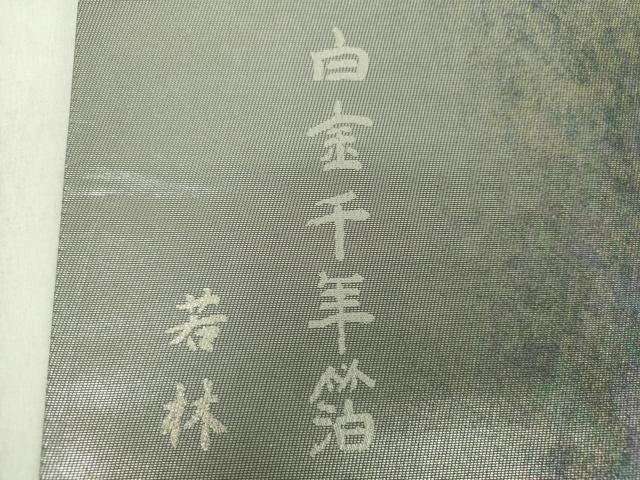 白雲千年箔
若林